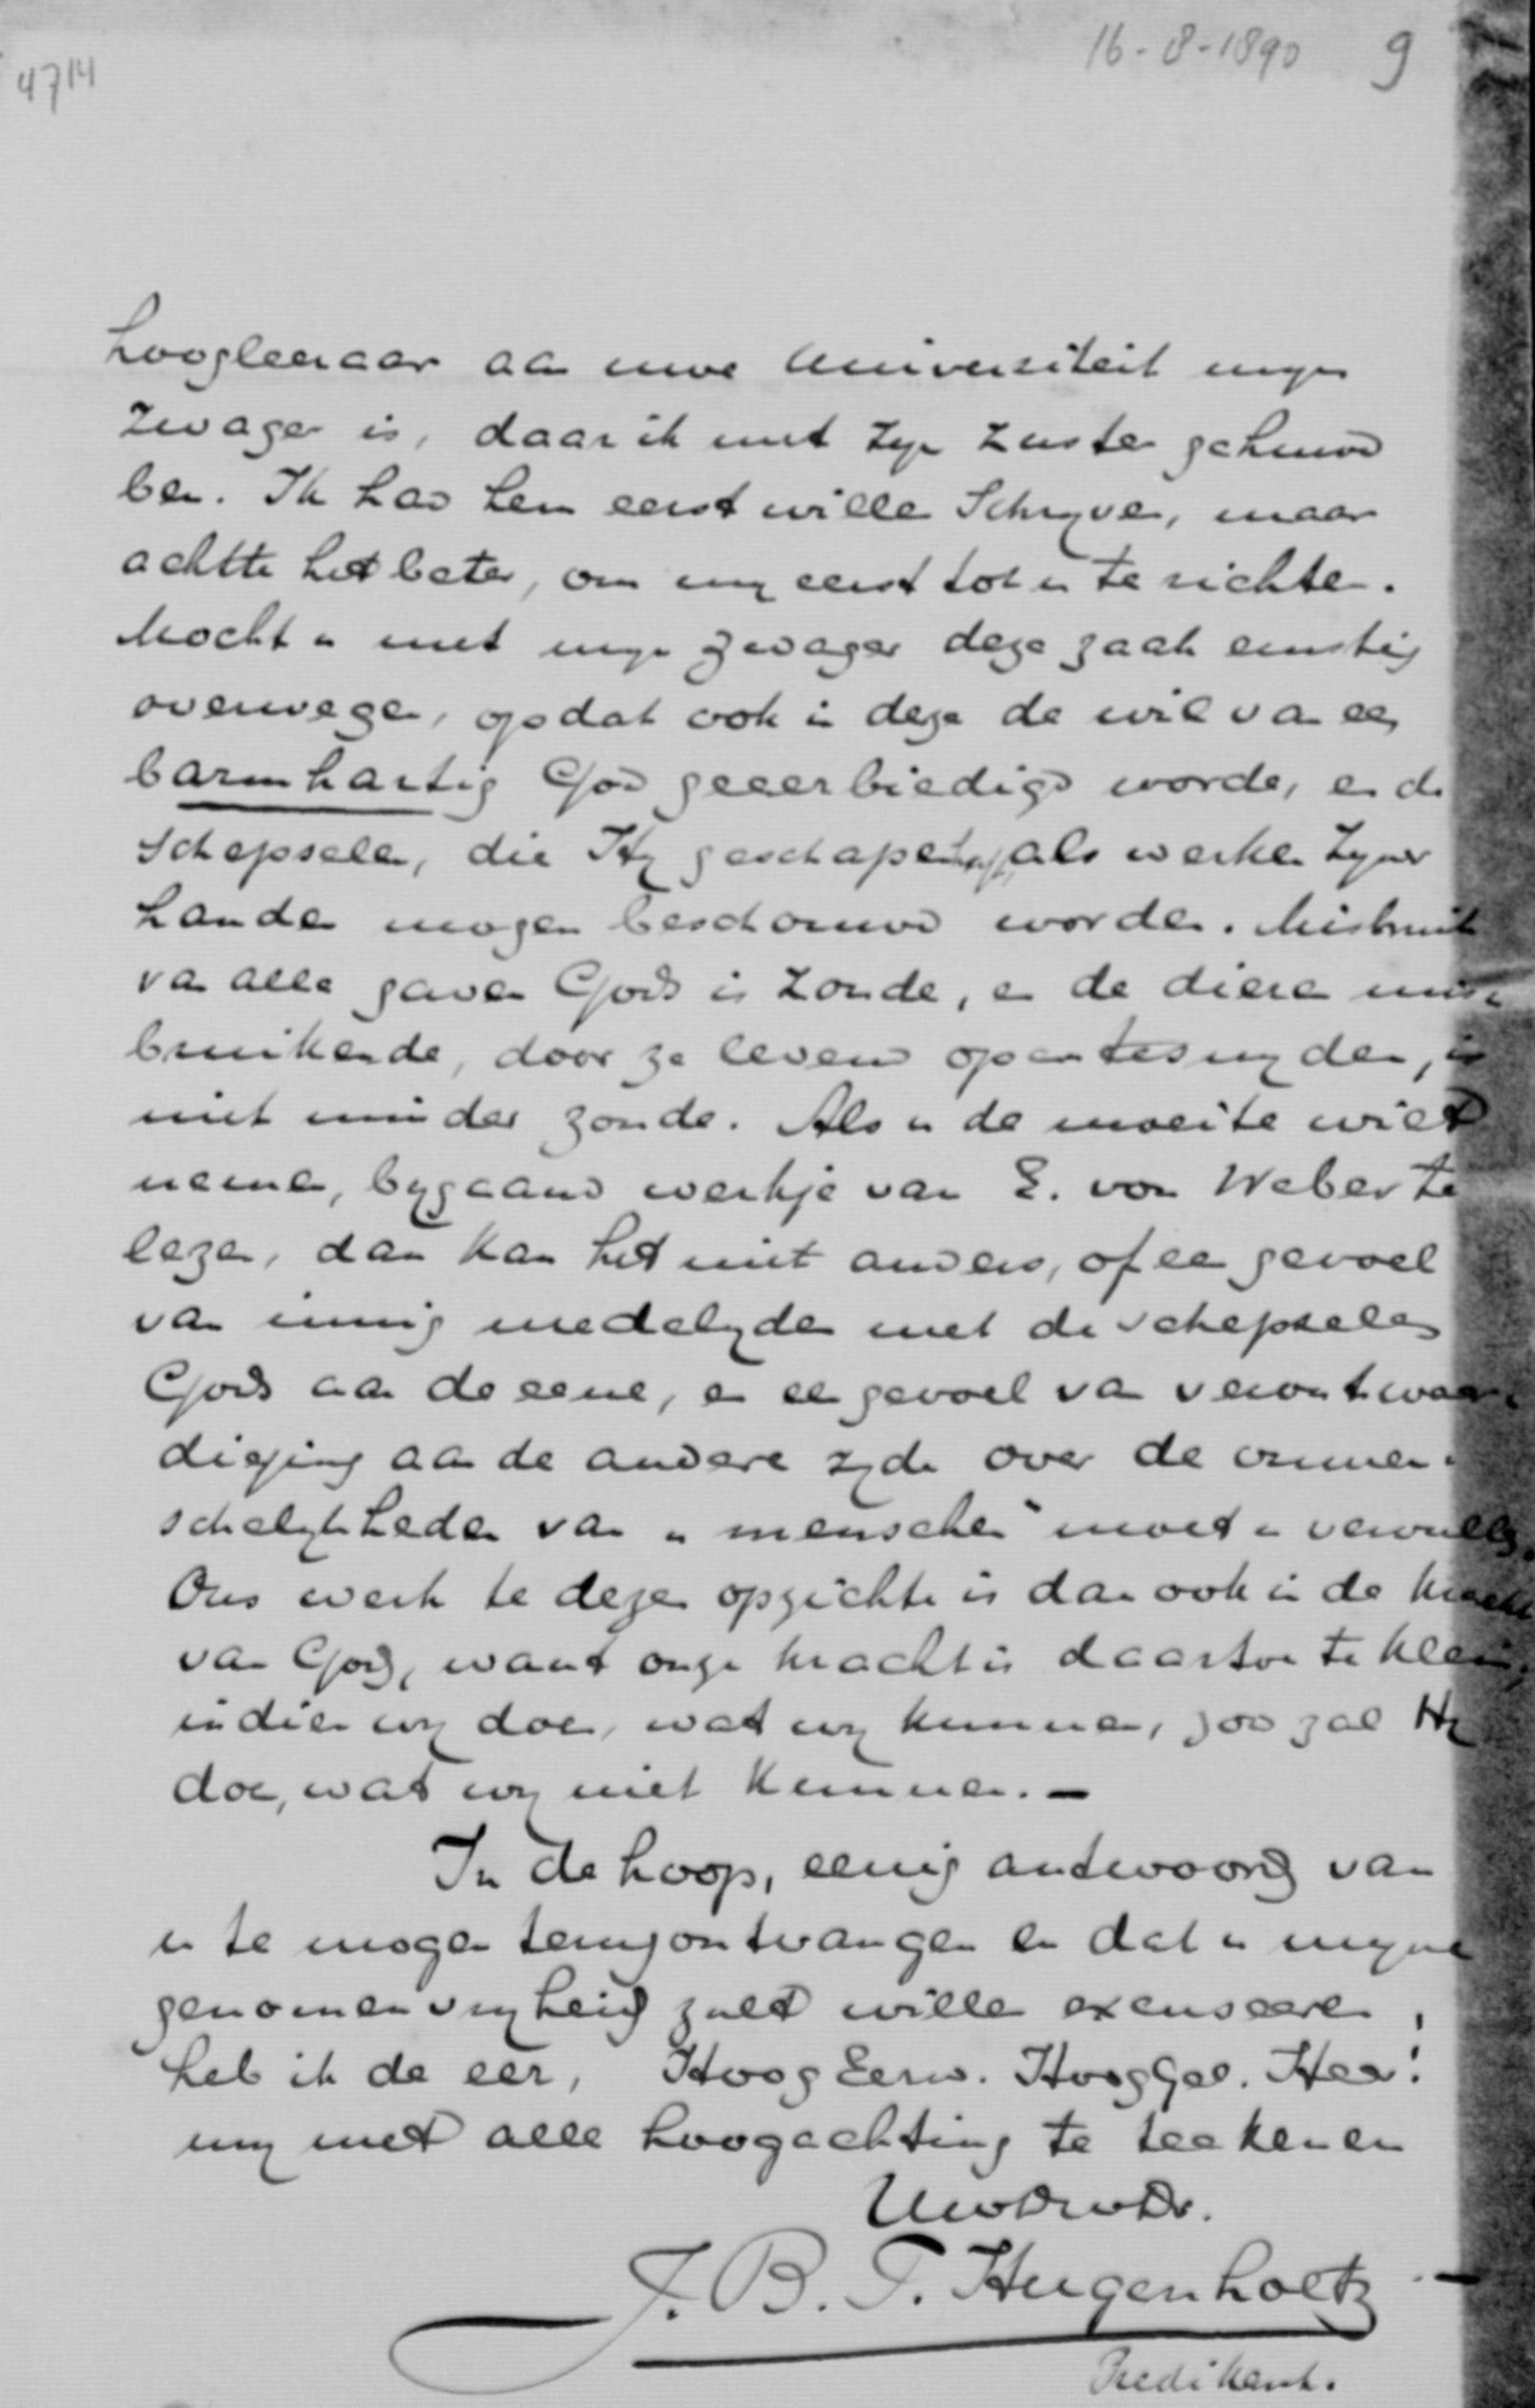 4714
16-8-1890 9
hoogleeraar aan uwe Universiteit mijn
zwager is, daar ik met zyn zuster gehuwd
ben. Ik had hem eerst willen Schryven, maar
achtte het beter, om my eerst tot u te richten.
Mocht u met myn zwager deze zaak ernstig
overwegen, opdat ook in deze de wil van een
barmhartig God geeerbiedigd worde, en de
Schepselen, die Hy geschapen als werken Zyner
handen mogen beschouwd worden. Misbruik
van alle gaven Gods is zonde, en de dieren mis-
bruikende, door ze levend open te snyden, is
niet minder zonde. Als u de moeite wilt
nemen, bygaand werkje van E. von Weber te
lezen, dan kan het niet anders, of een gevoel
van innig medelyden met de schepselen
Gods aan de eene, en een gevoel van verontwaar-
diging aan de andere zyde over de onmen-
schelykheden van "menschen" moet u vervullen.
Ons werk te dezen opzichte is dan ook in de kracht
van God, want onze kracht is daartoe te klein,
indien wy doen, wat wy kunnen, zoo zal Hy
doen, wat wy niet kunnen. —
In de hoop, eenig antwoord van
u te mogen terugontvangen en dat u myne
genomen vryheid zult willen excuseeren,
heb ik de eer, HoogEerw. HoogGel. Heer!
my met alle hoogachting te teekenen
UwDwDr.
J. B. T. Hugenholtz
Predikant.